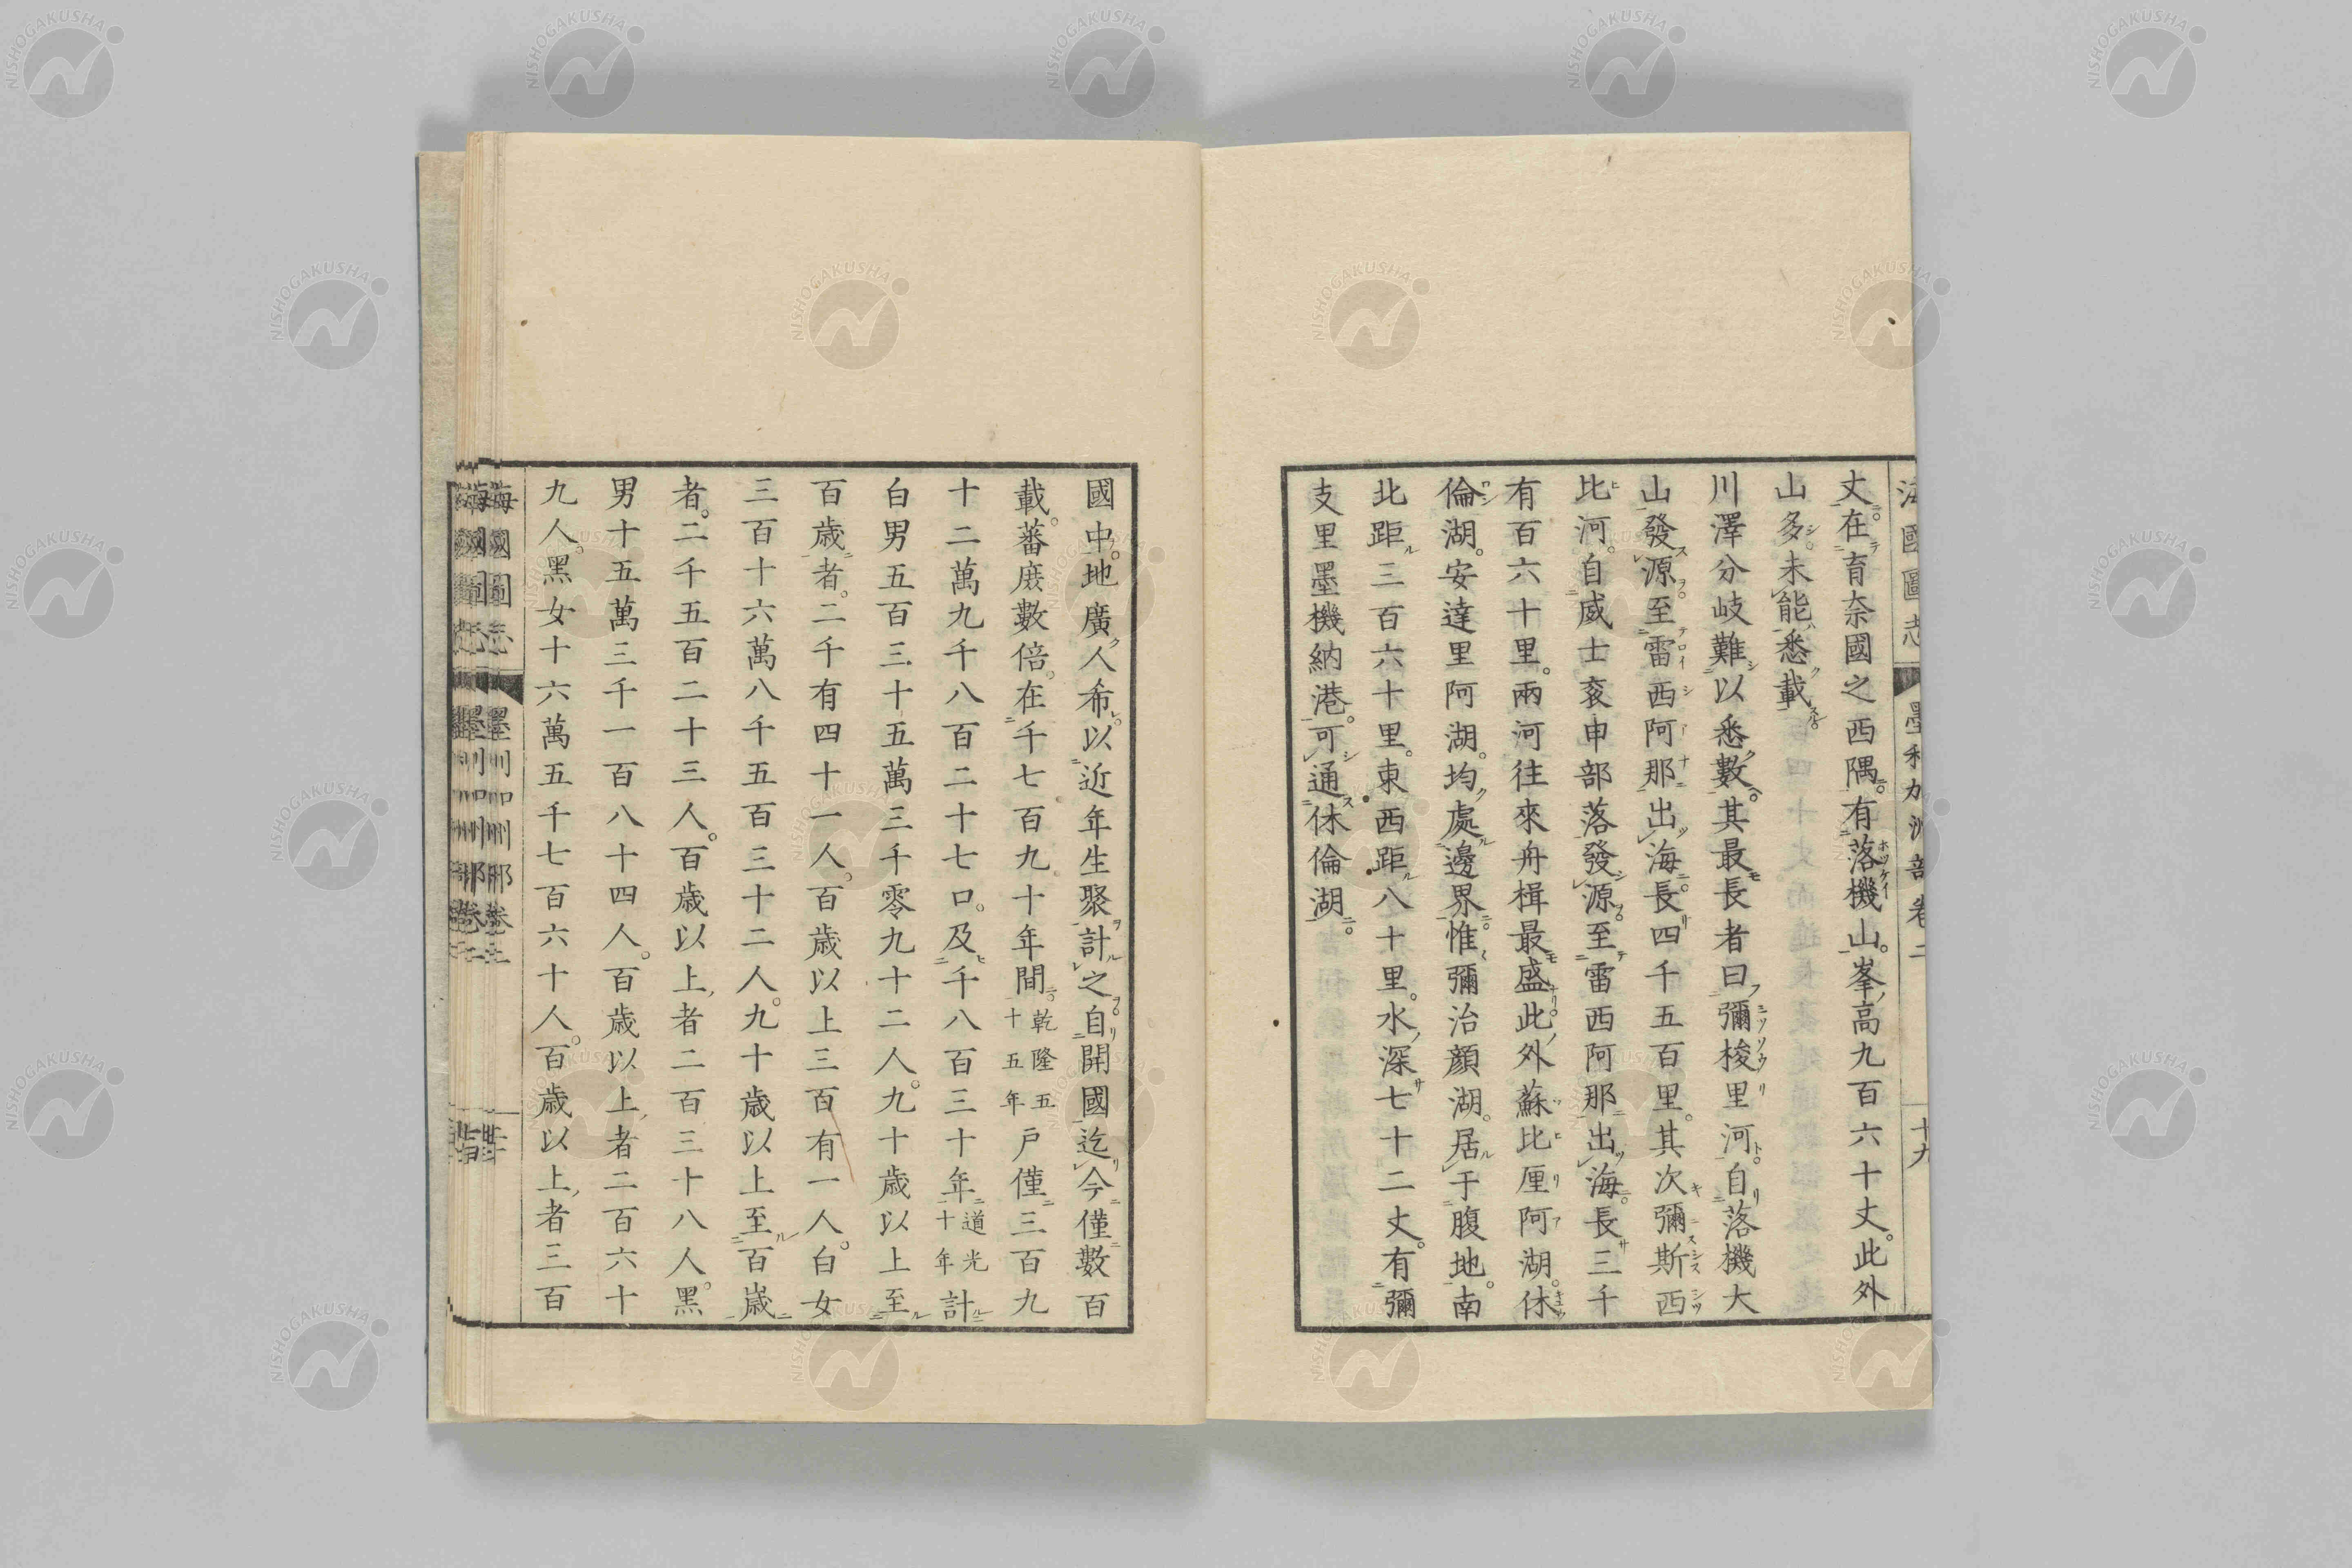 丈。在育奈國之西隅。有落機山。峯高九百六十丈。此外
山多。未能悉載。
川澤分岐難以悉數。其最長者曰彌梭里河。自落機大
山發源。至雷西阿那出海。長四千五百里。其次彌斯西
比河。自威士衮申部落發源。至雷西阿那出海。長三千
有百六十里。兩河往來舟楫最盛。此外蘇比厘阿湖。休
倫湖。安達里阿湖。均處邊界。惟彌治顏湖。居于腹地。南
北距三百六十里。東西距八十里。水深七十二丈。有彌
支里墨機納港。可通休倫湖。
國中。地廣人希。以近年生聚計之。自開國迄今僅數百
載。蕃庶數倍。在千七百九十年間。乾隆五十五年戶僅三百九
十二萬九千八百二十七口。及千八百三十年道光十年計
白男五百三十五萬三千零九十二人。九十歲以上至
百歲者。二千有四十一人。百歲以上三百有一人。白女
三百十六萬八千五百三十二人。九十歲以上至百歲
者。二千五百二十三人。百歲以上者二百三十八人。黑
男十五萬三千一百八十四人。百歲以上者二百六十
九人。黑女十六萬五千七百六十人。百歲以上者三百
NISHOGAKUSHA